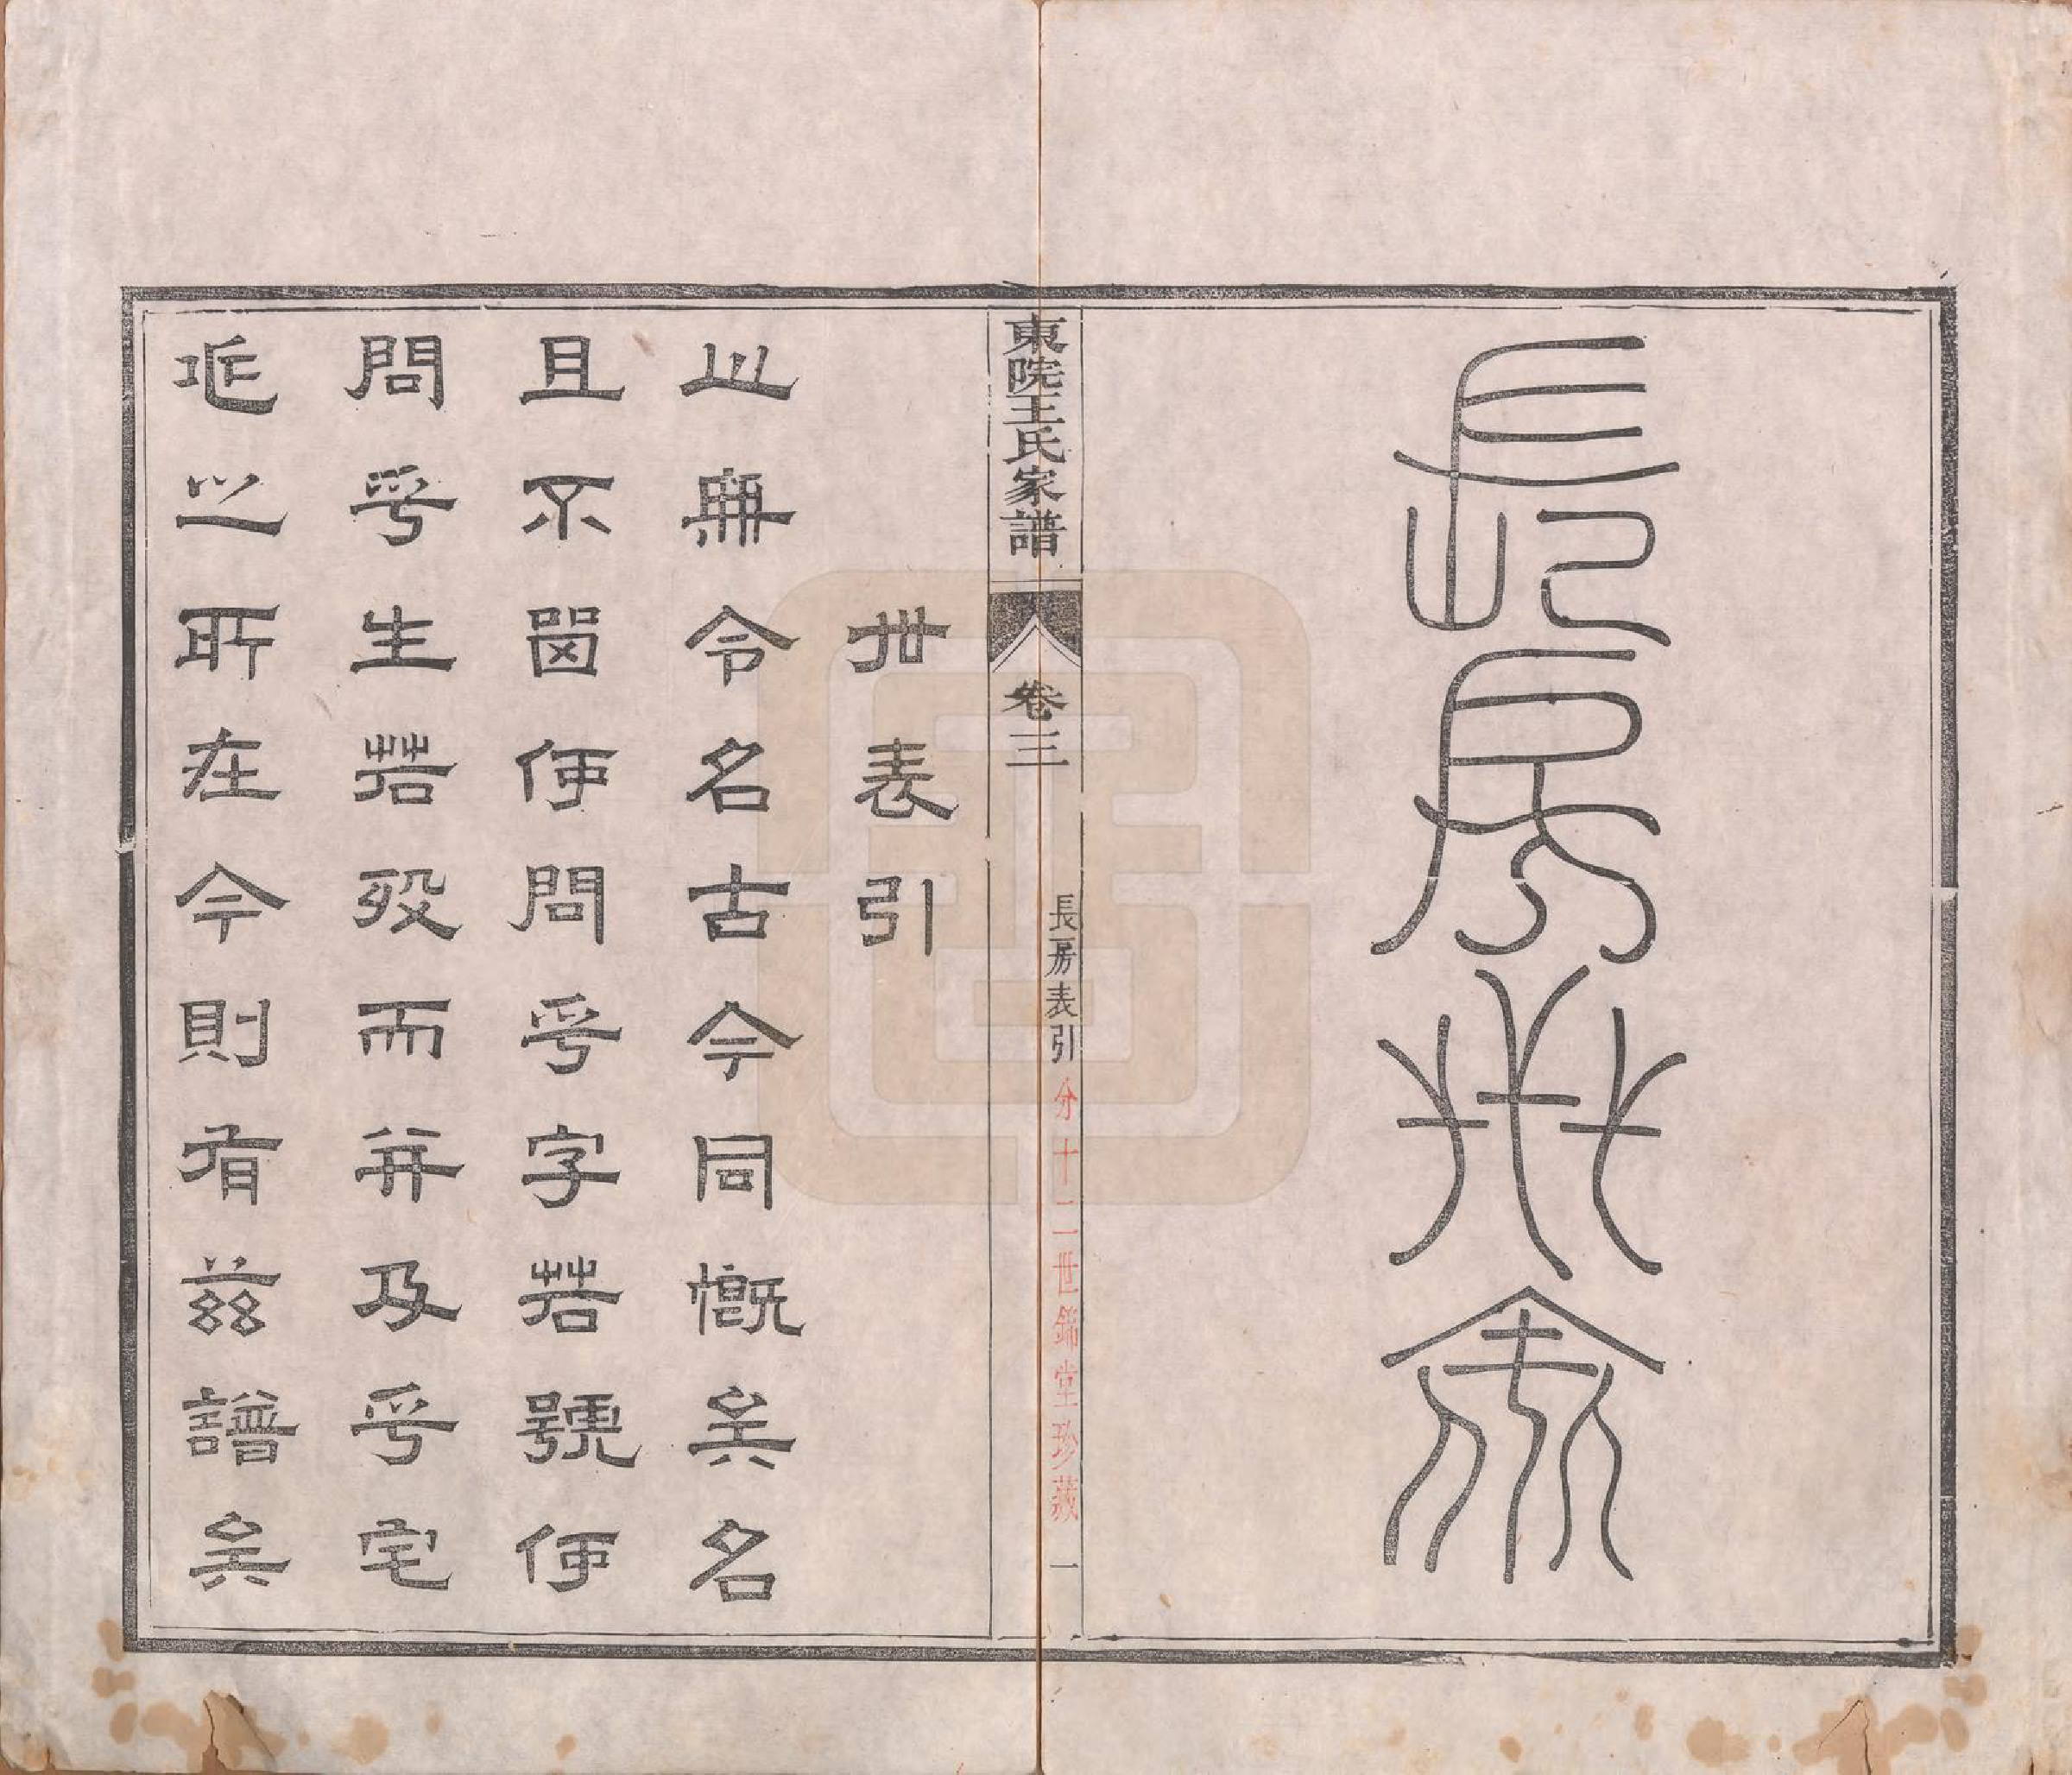 長房世表
東院王氏家譜
卷三
長房表引
分十二世錦堂珍藏
一
世表引
無令名古今同慨矣名
且不留何問乎字若號何
問乎生若歿而并及乎宅
兆之所在今則有茲譜矣